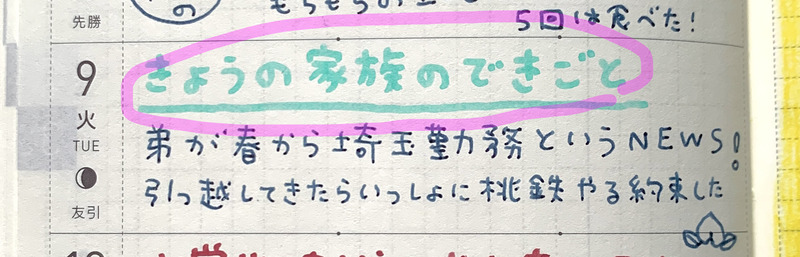 先勝
の
5回は食べた!
9
火
TUE
友引
きょうの家族のできごと
弟が春から埼玉勤務というNEWS!
引っ越ししてきたらいっしょに桃鉄やる約束した